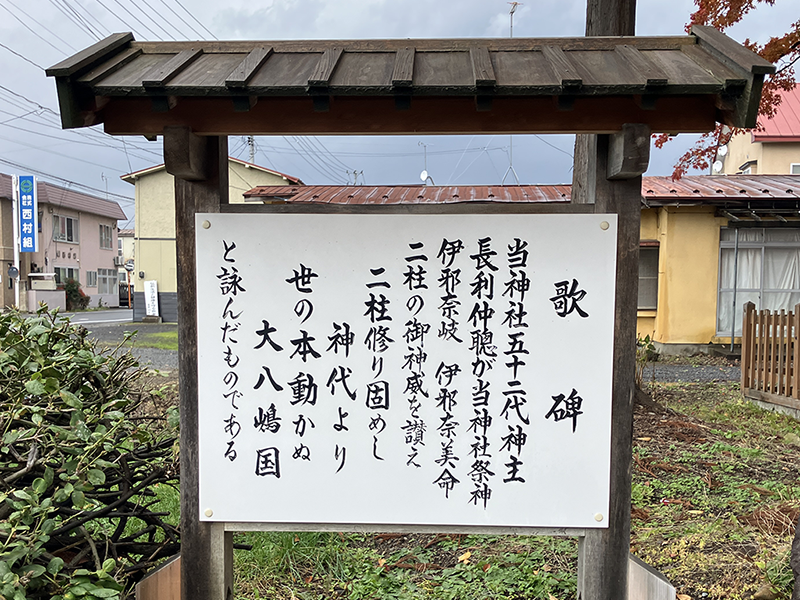 歌碑
当神社五十二代神主
長利仲聰が当神社祭神
伊邪奈岐 伊邪奈美命
二柱の御神威を讃え
二柱修り固めし
神代より
世の本動かぬ
大八嶋国
と詠んだものである
西村組